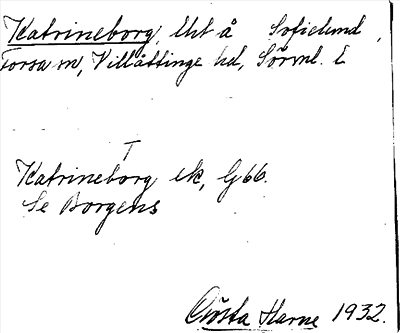 Katrineborg, lht å Sofielund,
Forssa sn, Villåttinge hd, Sörml. l.
T
Katrineborg ek, G66.
Se Borgens
Gösta Harne 1932.